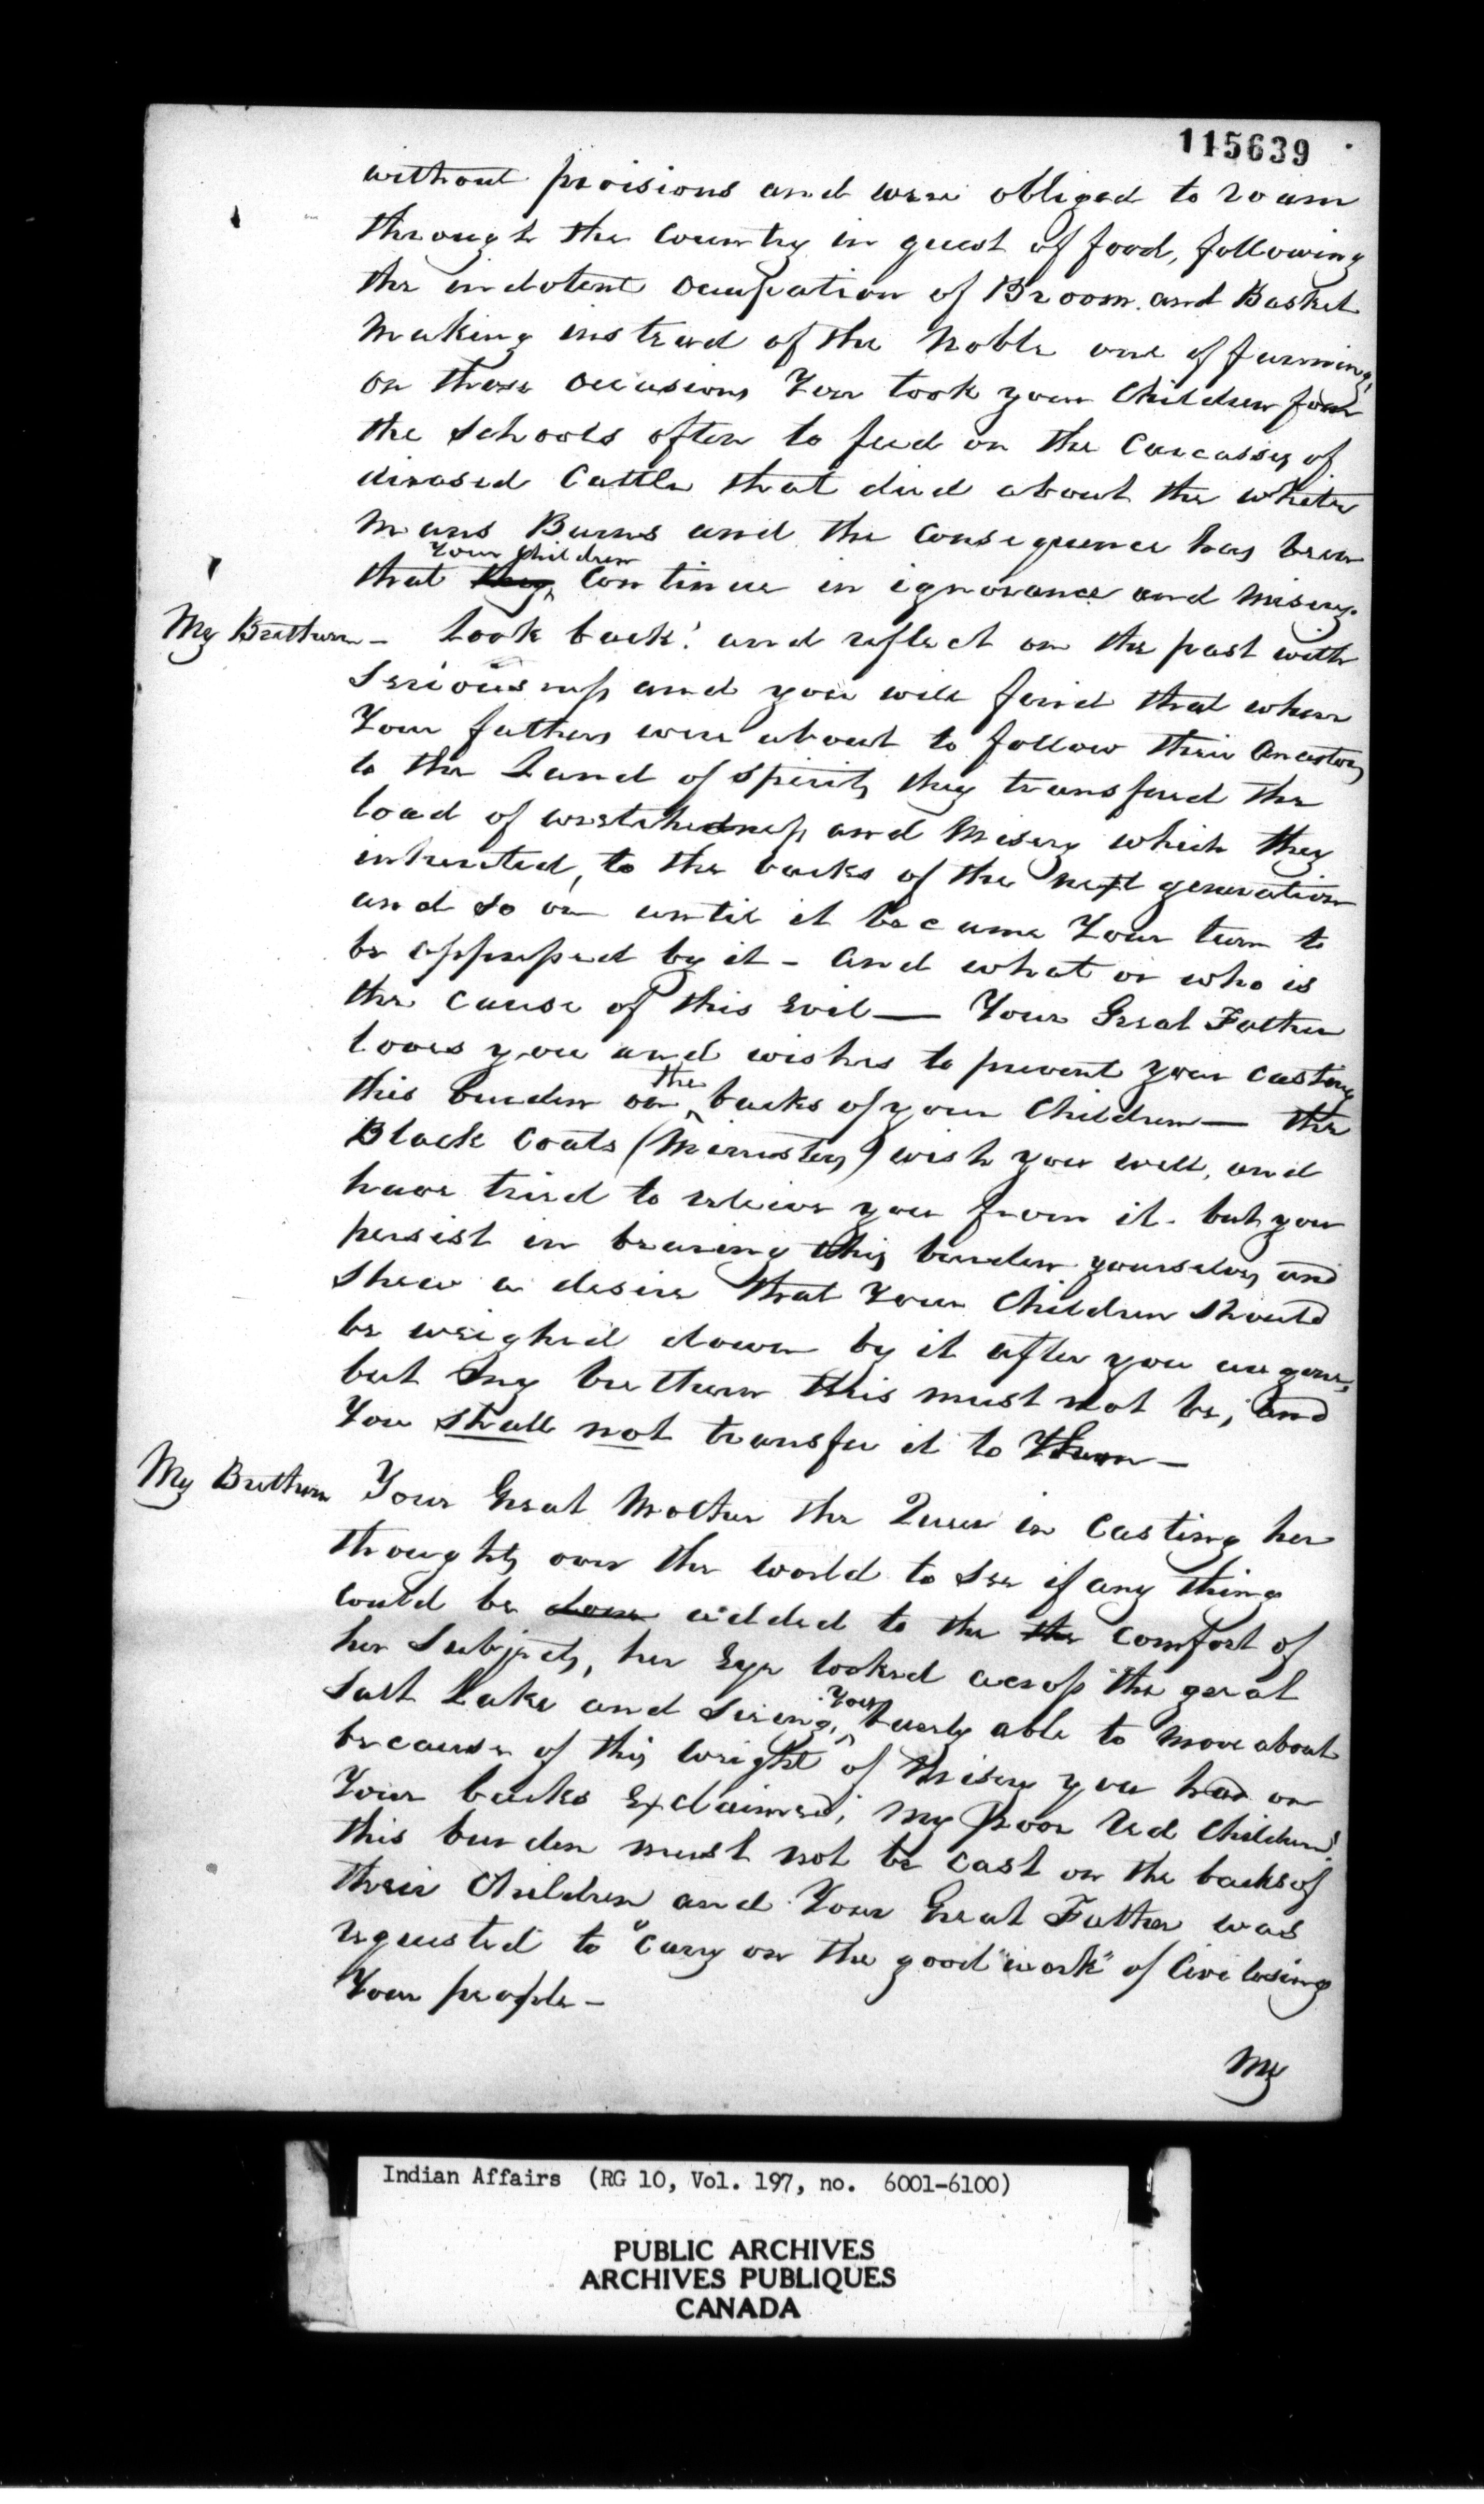 115639
without proisions and were obliged to roam
through the Country in quest of food, following
the indolent occupation of Broom and Basket
making instead of the noble one of farming,
on these occasions You took your Children from
the Schools often to feed on the Carcasses of
diseased Cattle that died about the white
mans Barns and the Consequence has been
Your Children
that they Continue in ignorance and misery.
My Brethern - Look back! and reflect on the past with
Seriousness and you will find that when
Your fathers were about to follow their Ancestors
to the Land of Spirits they transfered the
load of wretchedness and Misery which they
inherited, to the backs of the next generation
and so on until it became Your turn to
be oppressed by it - And what or who is
the cause of this Evil — Your Great Father
loves you and wishes to prevent your casting
the
this burden on backs of your Children — the
Black Coats (Ministers) wish you well, and
have tried to releive you from it. but you
persist in bearing this burden yourselves, and
shew a desire that Your Children should
be weighed down by it after you are gone,
but my brethern this must not be, and
You shall not transfer it to Them —
My Brethern Your Great Mother the Queen in Casting her
thoughts over the world to see if any thing
could be done added to the the comfort of
her Subjects, her Eye looked across the great
You
Salt Lake and Seeing, barely able to move about
because of this weight of Misery you had on
Your backs Exclaimed; My poor Red Children!
this burden must not be cast on the backs of
their Children and Your Great Father was
requested to "carry on the good "work" of Civilosing
Your people -
My
Indian Affairs (RG 10, Vol. 197, no. 6001-6100)
PUBLIC ARCHIVES
ARCHIVES PUBLIQUES
CANADA